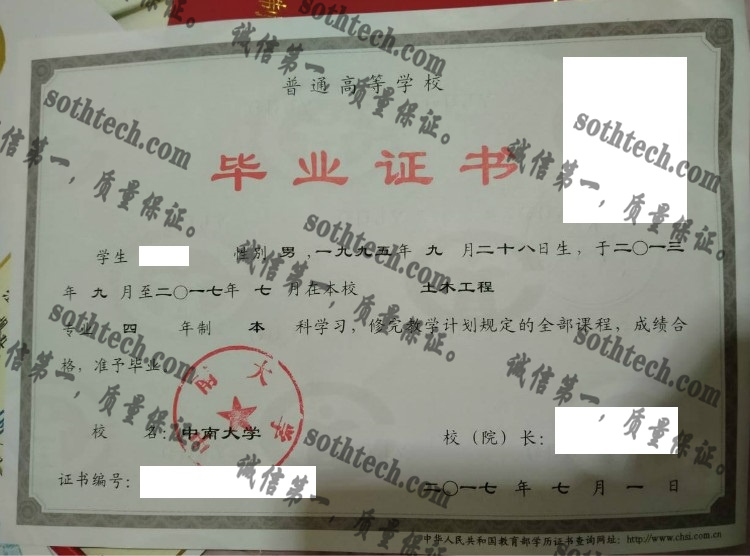 普通高等学校
毕业证书
学生 性别 男 ,一九九五年 九 月二十八日生, 于二〇一三
年 九 月至二〇一七年 七 月在本校 土木工程
专业 四 年制 本 科学习, 修完教学计划规定的全部课程, 成绩合
格, 准予毕业。
校 名: 中南大学
校（院）长:
证书编号:
二〇一七 年 七 月 一 日
中华人民共和国教育部学历证书查询网址: http://www.chsi.com.cn
中南大学
sothtech.com
诚信第一，质量保证。
sothtech.com
诚信第一，质量保证。
sothtech.com
诚信第一，质量保证。
sothtech.com
诚信第一，质量保证。
sothtech.com
诚信第一，质量保证。
sothtech.com
诚信第一，质量保证。
sothtech.com
诚信第一，质量保证。
sothtech.com
诚信第一，质量保证。